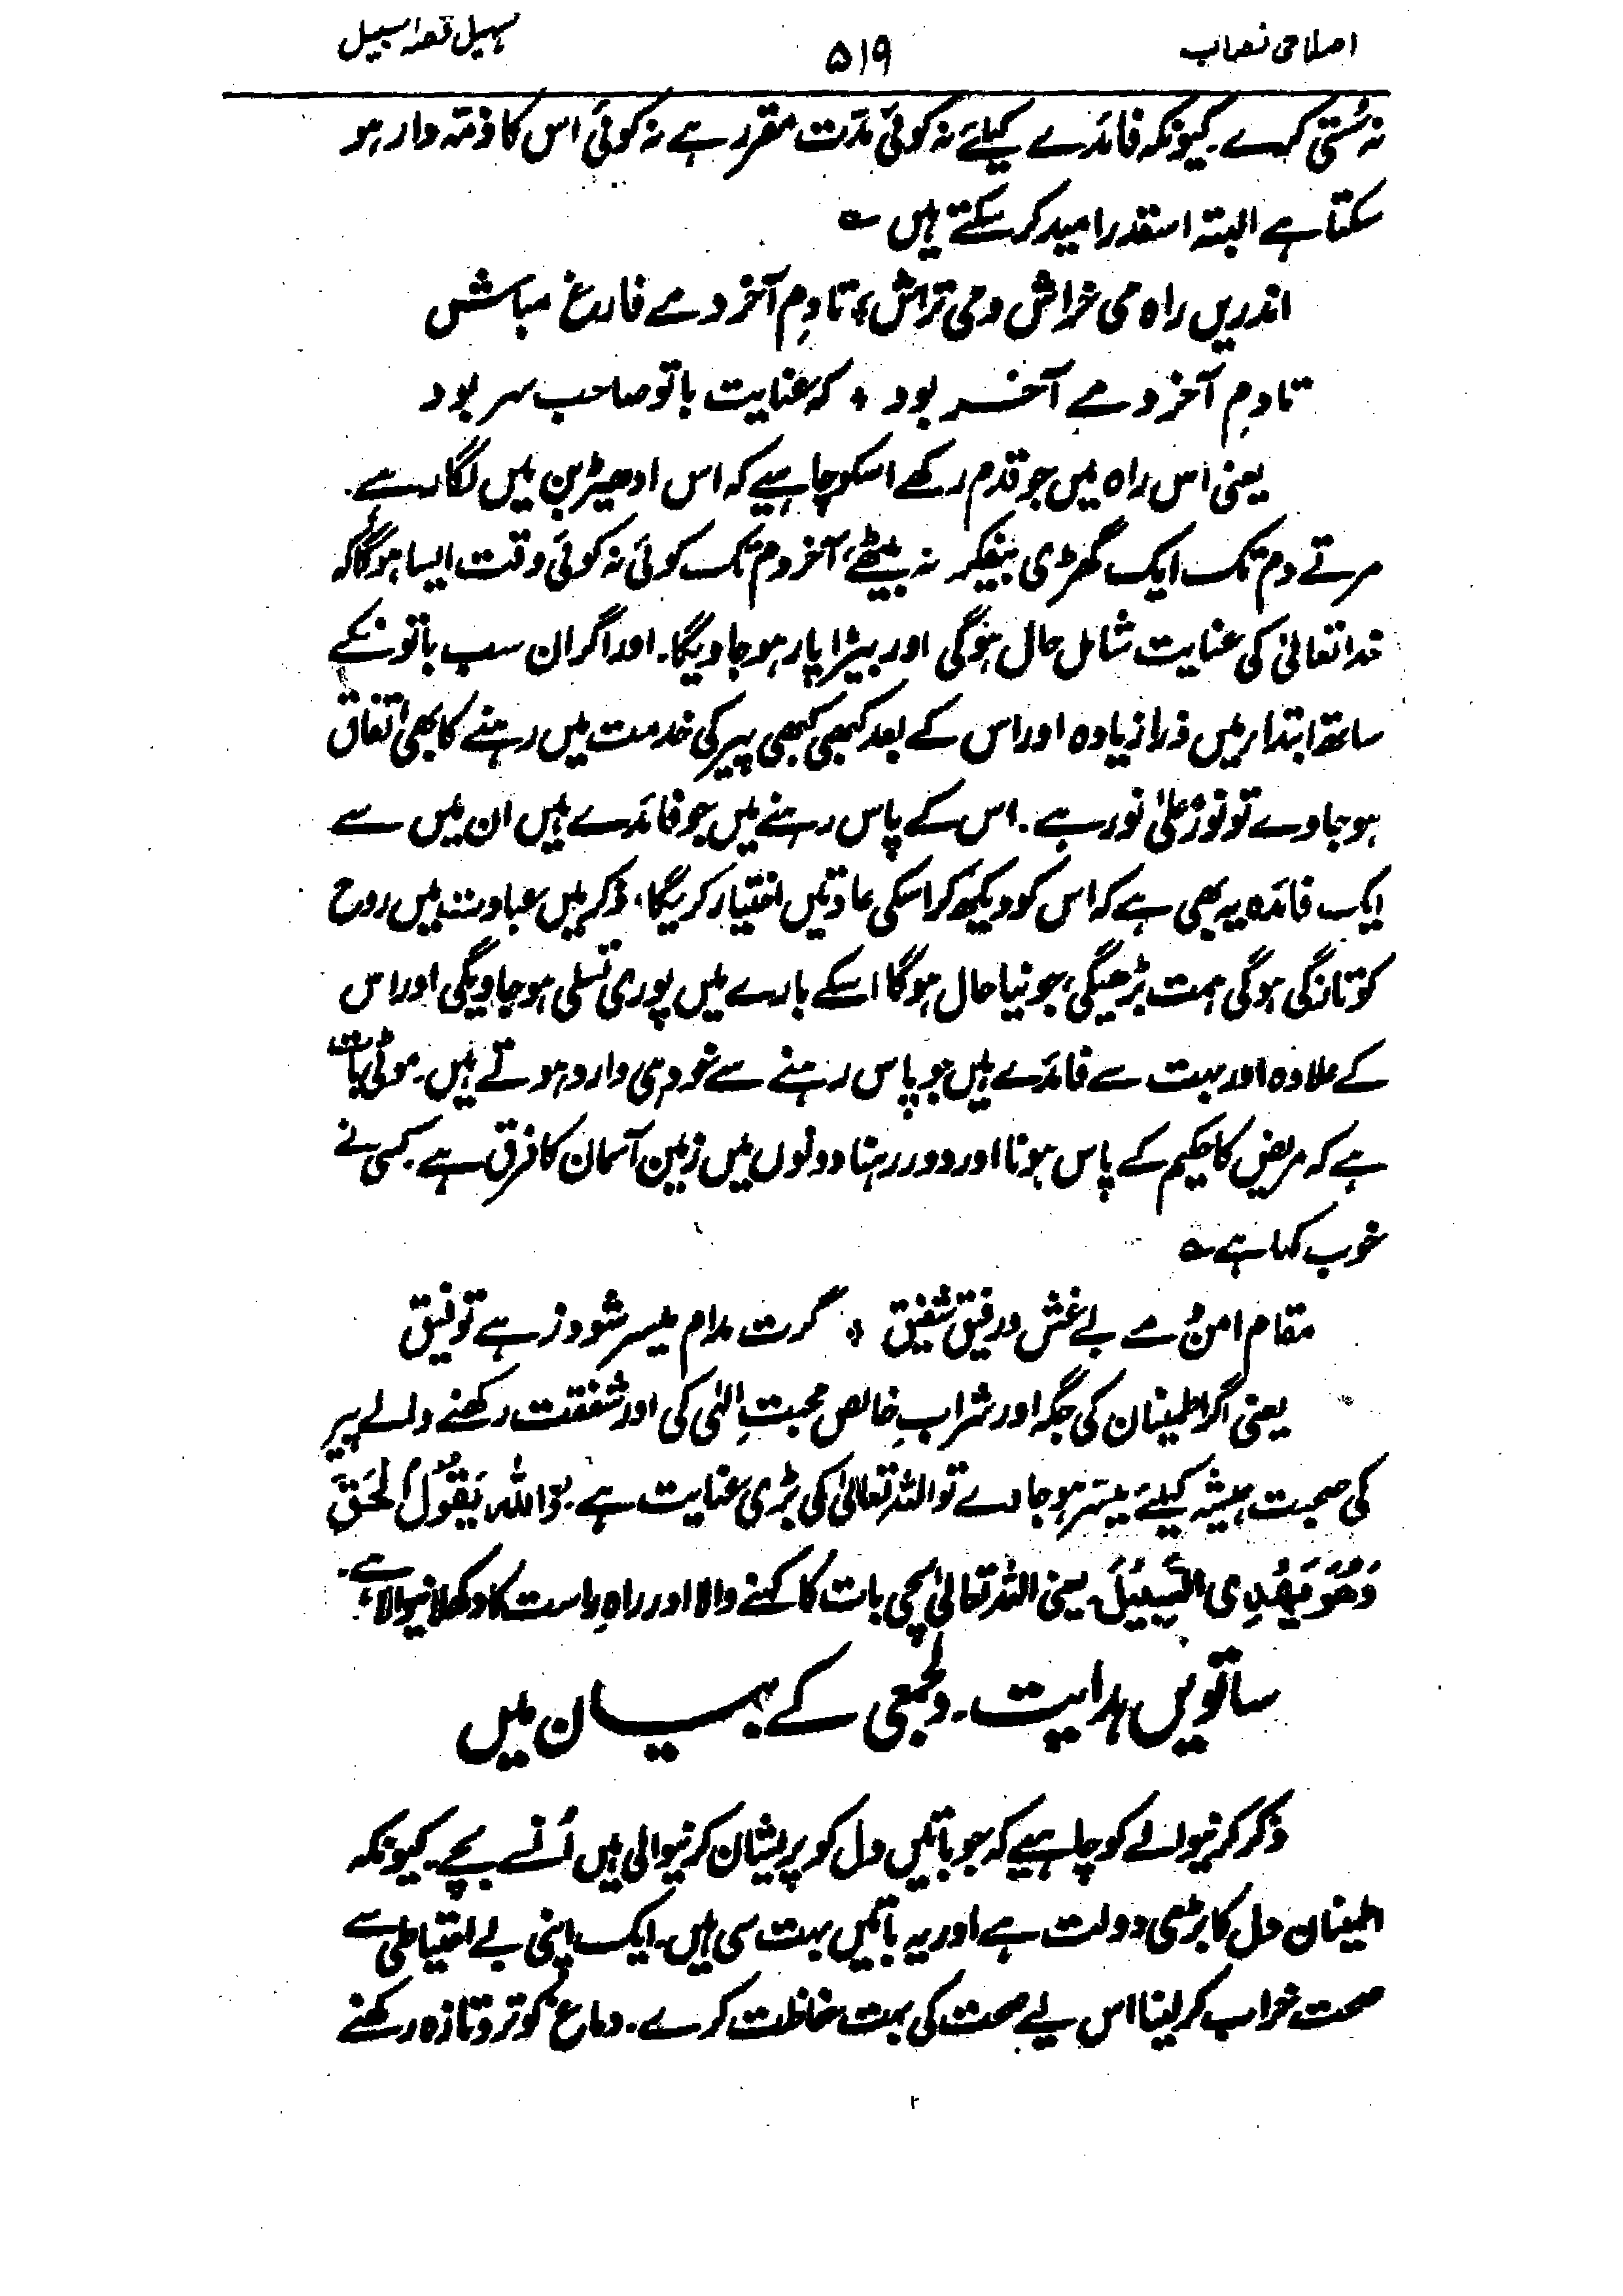 اصلاحی نصاب ۵۱۹ تسہیل قصد السبیل
نہ سُستی کرے۔ کیونکہ فائدے کیلئے نہ کوئی مدّت مقرر ہے نہ کوئی اس کا ذمّہ دار ہو
سکتا ہے البتہ اسقدر امید کر سکتے ہیں ؎
اندریں راہ می خراش و می تراش ؛ تا دمِ آخر دمے فارغ مباش
تا دمِ آخر دمے آخر بود ؛ کہ عنایت با تو صاحب سر بود
یعنی اس راہ میں جو قدم رکھے اسکو چاہیے کہ اس ادھیڑبن میں لگا رہے۔
مرتے دم تک ایک گھڑی بیفکر نہ بیٹھے، آخر دم تک کوئی نہ کوئی وقت ایسا ہوگا کہ
خدا تعالیٰ کی عنایت شامل حال ہوگی اور بیڑا پار ہو جاویگا۔ اور اگر ان سب باتونکے
ساتھ ابتدار میں ذرا زیادہ اور اس کے بعد کبھی کبھی پیر کی خدمت میں رہنے کا بھی اتفاق
ہو جاوے تو نورٌ علیٰ نور ہے۔ اس کے پاس رہنے میں جو فائدے ہیں ان میں سے
ایک فائدہ یہ بھی ہے کہ اس کو دیکھ کر اسکی عادتیں اختیار کریگا، ذکر میں عبادت میں روح
کو تازگی ہوگی ہمت بڑھیگی، جو نیا حال ہوگا اسکے بارے میں پوری تسلی ہو جاویگی اور اس
کے علاوہ اور بہت سے فائدے ہیں جو پاس رہنے سے خود ہی وارد ہوتے ہیں۔ موٹی بات
ہے کہ مریض کا حکیم کے پاس ہونا اور دور رہنا دونوں میں زمین آسمان کا فرق ہے۔ کسی نے
خوب کہا ہے ؎
مقام امن و مے بے غش و رفیق شفیق ؛ گرت مدام میسر شود زہے توفیق
یعنی اگر اطمینان کی جگہ اور شرابِ خالص محبتِ الٰہی کی اور شفقت رکھنے والے پیر
کی صحبت ہمیشہ کیلئے میسّر ہو جاوے تو اللہ تعالیٰ کی بڑی عنایت ہے۔ وَاللّٰہُ یَقُوْلُ الْحَقَّ
وَھُوَ یَھْدِی السَّبِیْلَ۔ یعنی اللہ تعالیٰ سچی بات کا کہنے والا اور راہِ راست کا دکھلانیوالا ہے۔
ساتویں ہدایت۔ دلجمعی کے بیان میں
ذکر کرنیوالے کو چاہیے کہ جو باتیں دل کو پریشان کرنیوالی ہیں اُنسے بچے۔ کیونکہ
اطمینان دل کا بڑی دولت ہے اور یہ باتیں بہت سی ہیں۔ ایک اپنی بے احتیاطی سے
صحت خراب کر لینا اس لیے صحت کی بہت حفاظت کرے۔ دماغ کو تر و تازہ رکھنے